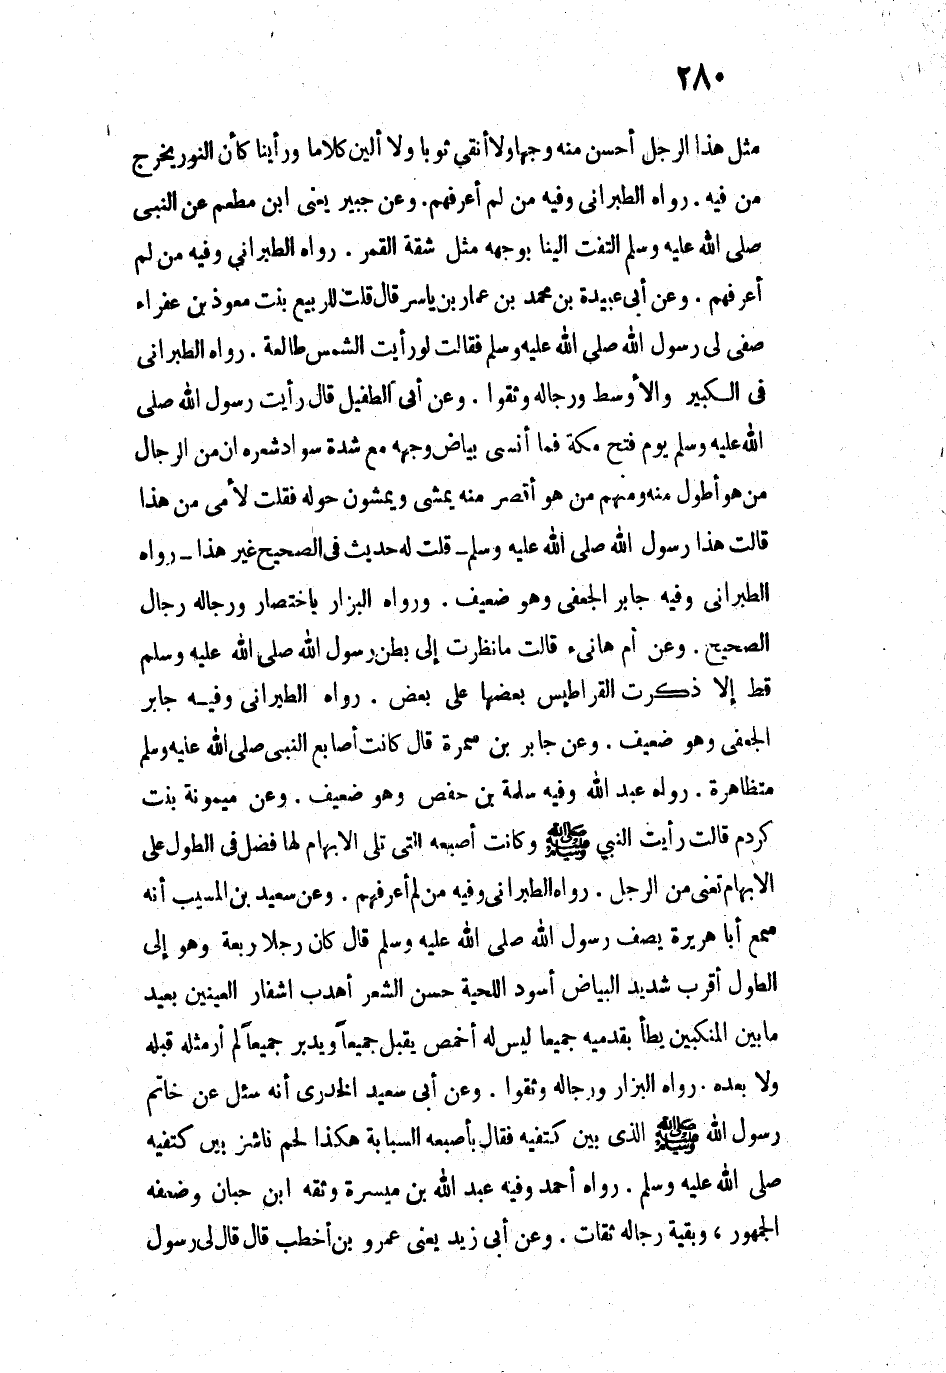 ٢٨٠
مثل هذا الرجل أحسن منه وجها ولا أنقي ثوبا ولا ألين كلاما ورأينا كأن النور يخرج
من فيه . رواه الطبرانى وفيه من لم أعرفهم. وعن جبير يعنى ابن مطعم عن النبى
صلى الله عليه وسلم التفت الينا بوجهه مثل شقة القمر . رواه الطبراني وفيه من لم
أعرفهم . وعن أبى عبيدة بن محمد بن عمار بن ياسر قال قلت للربيع بنت معوذ بن عفراء
صفى لى رسول الله صلي الله عليه وسلم فقالت لو رأيت الشمس طالعة . رواه الطبرانى
فى الكبير والأوسط ورجاله وثقوا . وعن أبى الطفيل قال رأيت رسول الله صلى
الله عليه وسلم يوم فتح مكة فما أنسى بياض وجهه مع شدة سواد شعره ان من الرجال
من هو أطول منه ومنهم من هو أقصر منه يمشى ويمشون حوله فقلت لأمى من هذا
قالت هذا رسول الله صلى الله عليه وسلم ـ قلت له حديث فى الصحيح غير هذا ـ رواه
الطبرانى وفيه جابر الجعفى وهو ضعيف . ورواه البزار باختصار ورجاله رجال
الصحيح . وعن أم هانىء قالت ما نظرت إلى بطن رسول الله صلى الله عليه وسلم
قط إلا ذكرت القراطيس بعضها على بعض . رواه الطبرانى وفيه جابر
الجعفى وهو ضعيف . وعن جابر بن سمرة قال كانت أصابع النبى صلى الله عليه وسلم
متظاهرة . رواه عبد الله وفيه سلمة بن حفص وهو ضعيف . وعن ميمونة بنت
كردم قالت رأيت النبي ﷺ وكانت أصبعه التى تلى الابهام لها فضل فى الطول على
الابهام تعنى من الرجل . رواه الطبرانى وفيه من لم أعرفهم . وعن سعيد بن المسيب أنه
سمع أبا هريرة يصف رسول الله صلى الله عليه وسلم قال كان رجلا ربعة وهو إلى
الطول أقرب شديد البياض أسود اللحية حسن الشعر أهدب اشفار العينين بعيد
ما بين المنكبين يطأ بقدميه جميعا ليس له أخمص يقبل جميعاً ويدبر جميعاً لم أر مثله قبله
ولا بعده . رواه البزار ورجاله وثقوا . وعن أبى سعيد الخدرى أنه سئل عن خاتم
رسول الله ﷺ الذى بين كتفيه فقال بأصبعه السبابة هكذا لحم ناشز بين كتفيه
صلى الله عليه وسلم . رواه أحمد وفيه عبد الله بن ميسرة وثقه ابن حبان وضعفه
الجمهور ، وبقية رجاله ثقات . وعن أبى زيد يعنى عمرو بن أخطب قال قال لى رسول